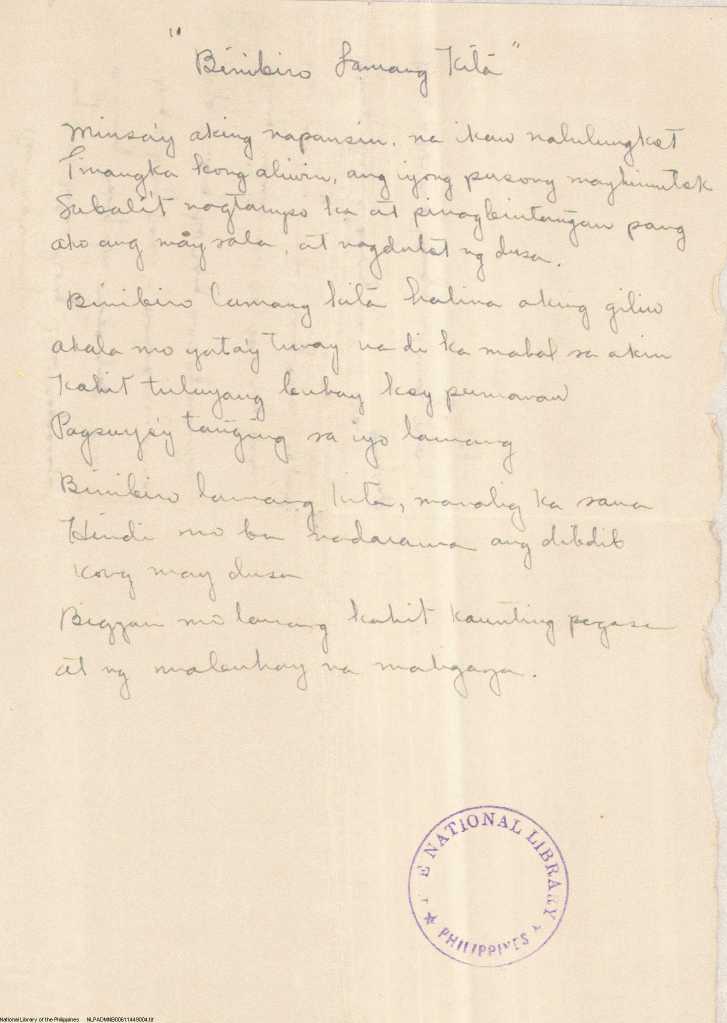 "Binibiro Lamang Kita"
Minsa'y aking napansin, na ikaw nalulungkot
Tinangka kong aliwin, ang iyong pusong maghimutok
Subali't nagtampo ka at pinagbintangan pang
ako ang may sala, at nagdulot ng dusa.
Binibiro lamang kita halina aking giliw
akala mo yata'y tunay na di ka mahal sa akin
Kahit tuluyang buhay ko'y pumanaw
Pagsuyo'y tanging sa iyo lamang
Binibiro lamang kita, manalig ka sana
Hindi mo ba nadarama ang dibdib
kong may dusa
Bigyan mo lamang kahit kaunting pagasa
at ng mabuhay na maligaya.
E NATIONAL LIBRARY
PHILIPPINES
National Library of the Philippines NLPADMNB00611449004.tif